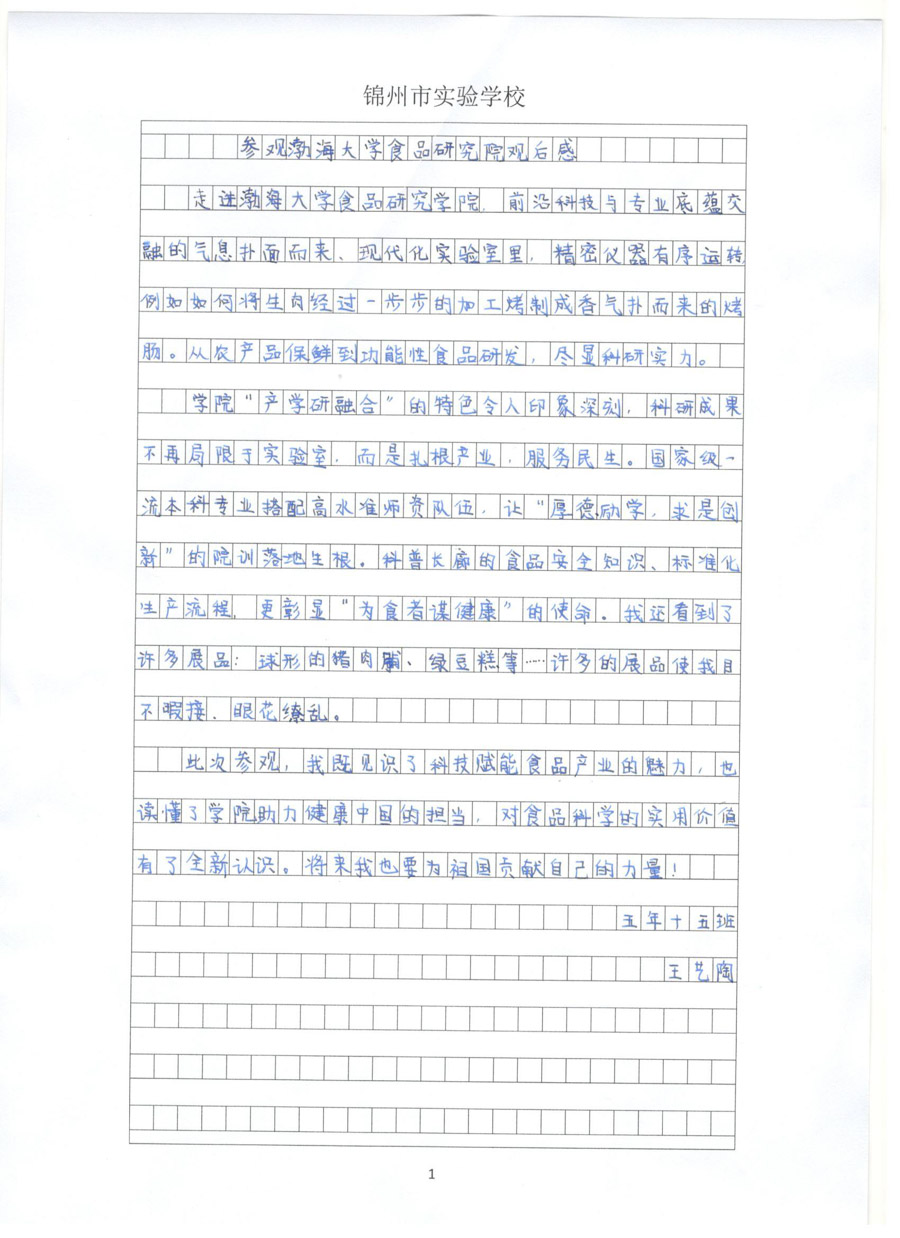 锦州市实验学校
参观渤海大学食品研究院观后感
走进渤海大学食品研究学院，前沿科技与专业底蕴交
融的气息扑面而来、现代化实验室里，精密仪器有序运转，
例如如何将生肉经过一步步的加工烤制成香气扑而来的烤
肠。从农产品保鲜到功能性食品研发，尽显科研实力。
学院“产学研融合”的特色令人印象深刻，科研成果
不再局限于实验室，而是扎根产业，服务民生。国家级一
流本科专业搭配高水准师资队伍，让“厚德励学，求是创
新”的院训落地生根。科普长廊的食品安全知识、标准化
生产流程，更彰显“为食者谋健康”的使命。我还看到了
许多展品：球形的猪肉脯、绿豆糕等……许多的展品使我目
不暇接、眼花缭乱。
此次参观，我既见识了科技赋能食品产业的魅力，也
读懂了学院助力健康中国的担当，对食品科学的实用价值
有了全新认识。将来我也要为祖国贡献自己的力量！
五年十五班
王艺陶
1